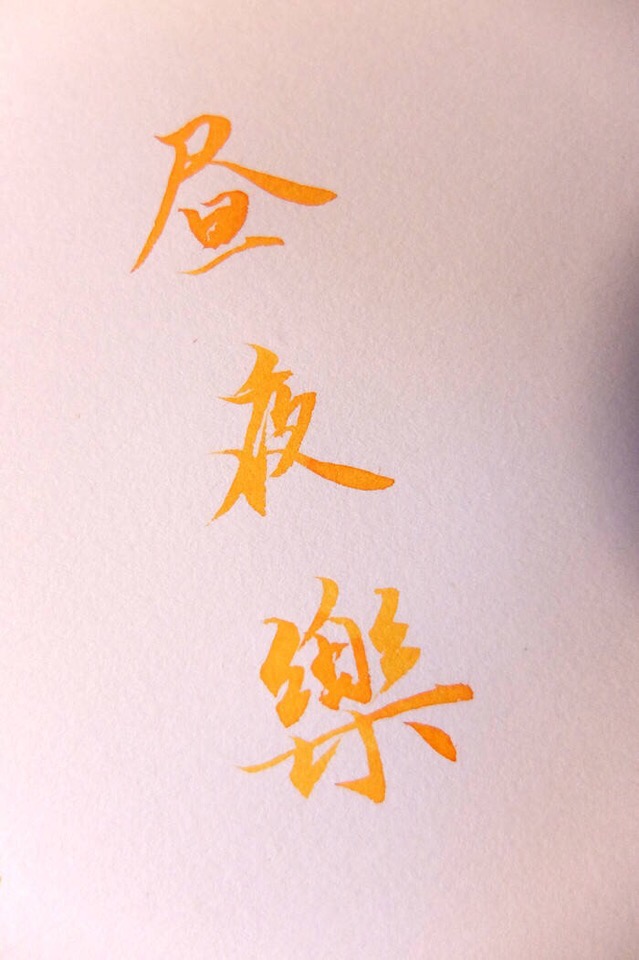 昼夜樂